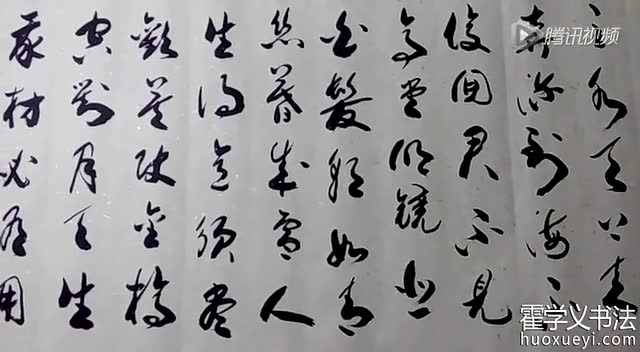 之水天上来
奔流到海不
復回君不見
高堂明鏡悲
白髮朝如青
絲暮成雪人
生得意須盡
歡莫使金樽
空對月天生
我材必有用
腾讯视频
霍学义书法
huoxueyi.com